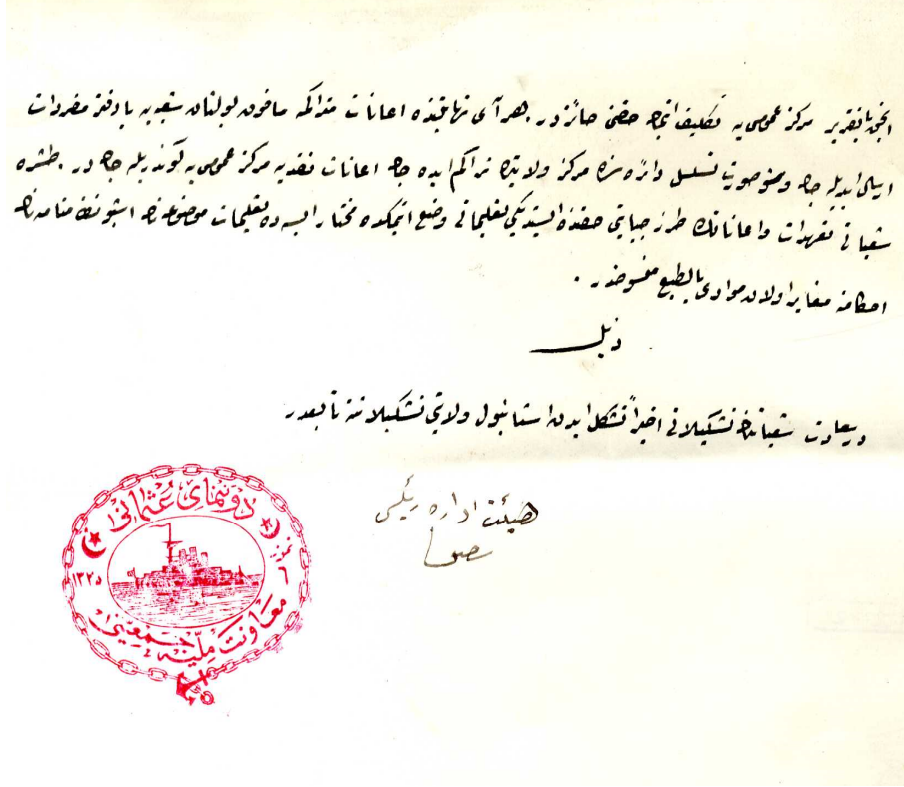 انجق بالتقرير مركز عموميه تكليف ايتمك حقنى حائزدر . هر آى نهايتنده اعانات متراكمه مافوق بولنان شعبه يه بادفتر مفردات
ارسال ايديله جك وبو صورت تسلسل دائره سنده مركز ولايتده تراكم ايده جك اعانات نقديه مركز عموميه كوندريله جكدر . طشره
شعباتى تعهدات واعاناتك طرز جبايتى حقنده ايستديكى تعليماتى وضع ايتمكده مختار ايسه ده تعليمات موضوعه نك اشبو نظامنامه نك
احكامنه مغاير اولان موادى بالطبع مفسوخدر .
ذيل
درسعادت شعباتنك تشكيلاتى اخيراً تشكل ايدن استانبول ولايتى تشكيلاتنه تابعدر
هيئت اداره رئيسى
دوننماى عثمانى
معاونت مليه جمعيتى
١٣٢٥